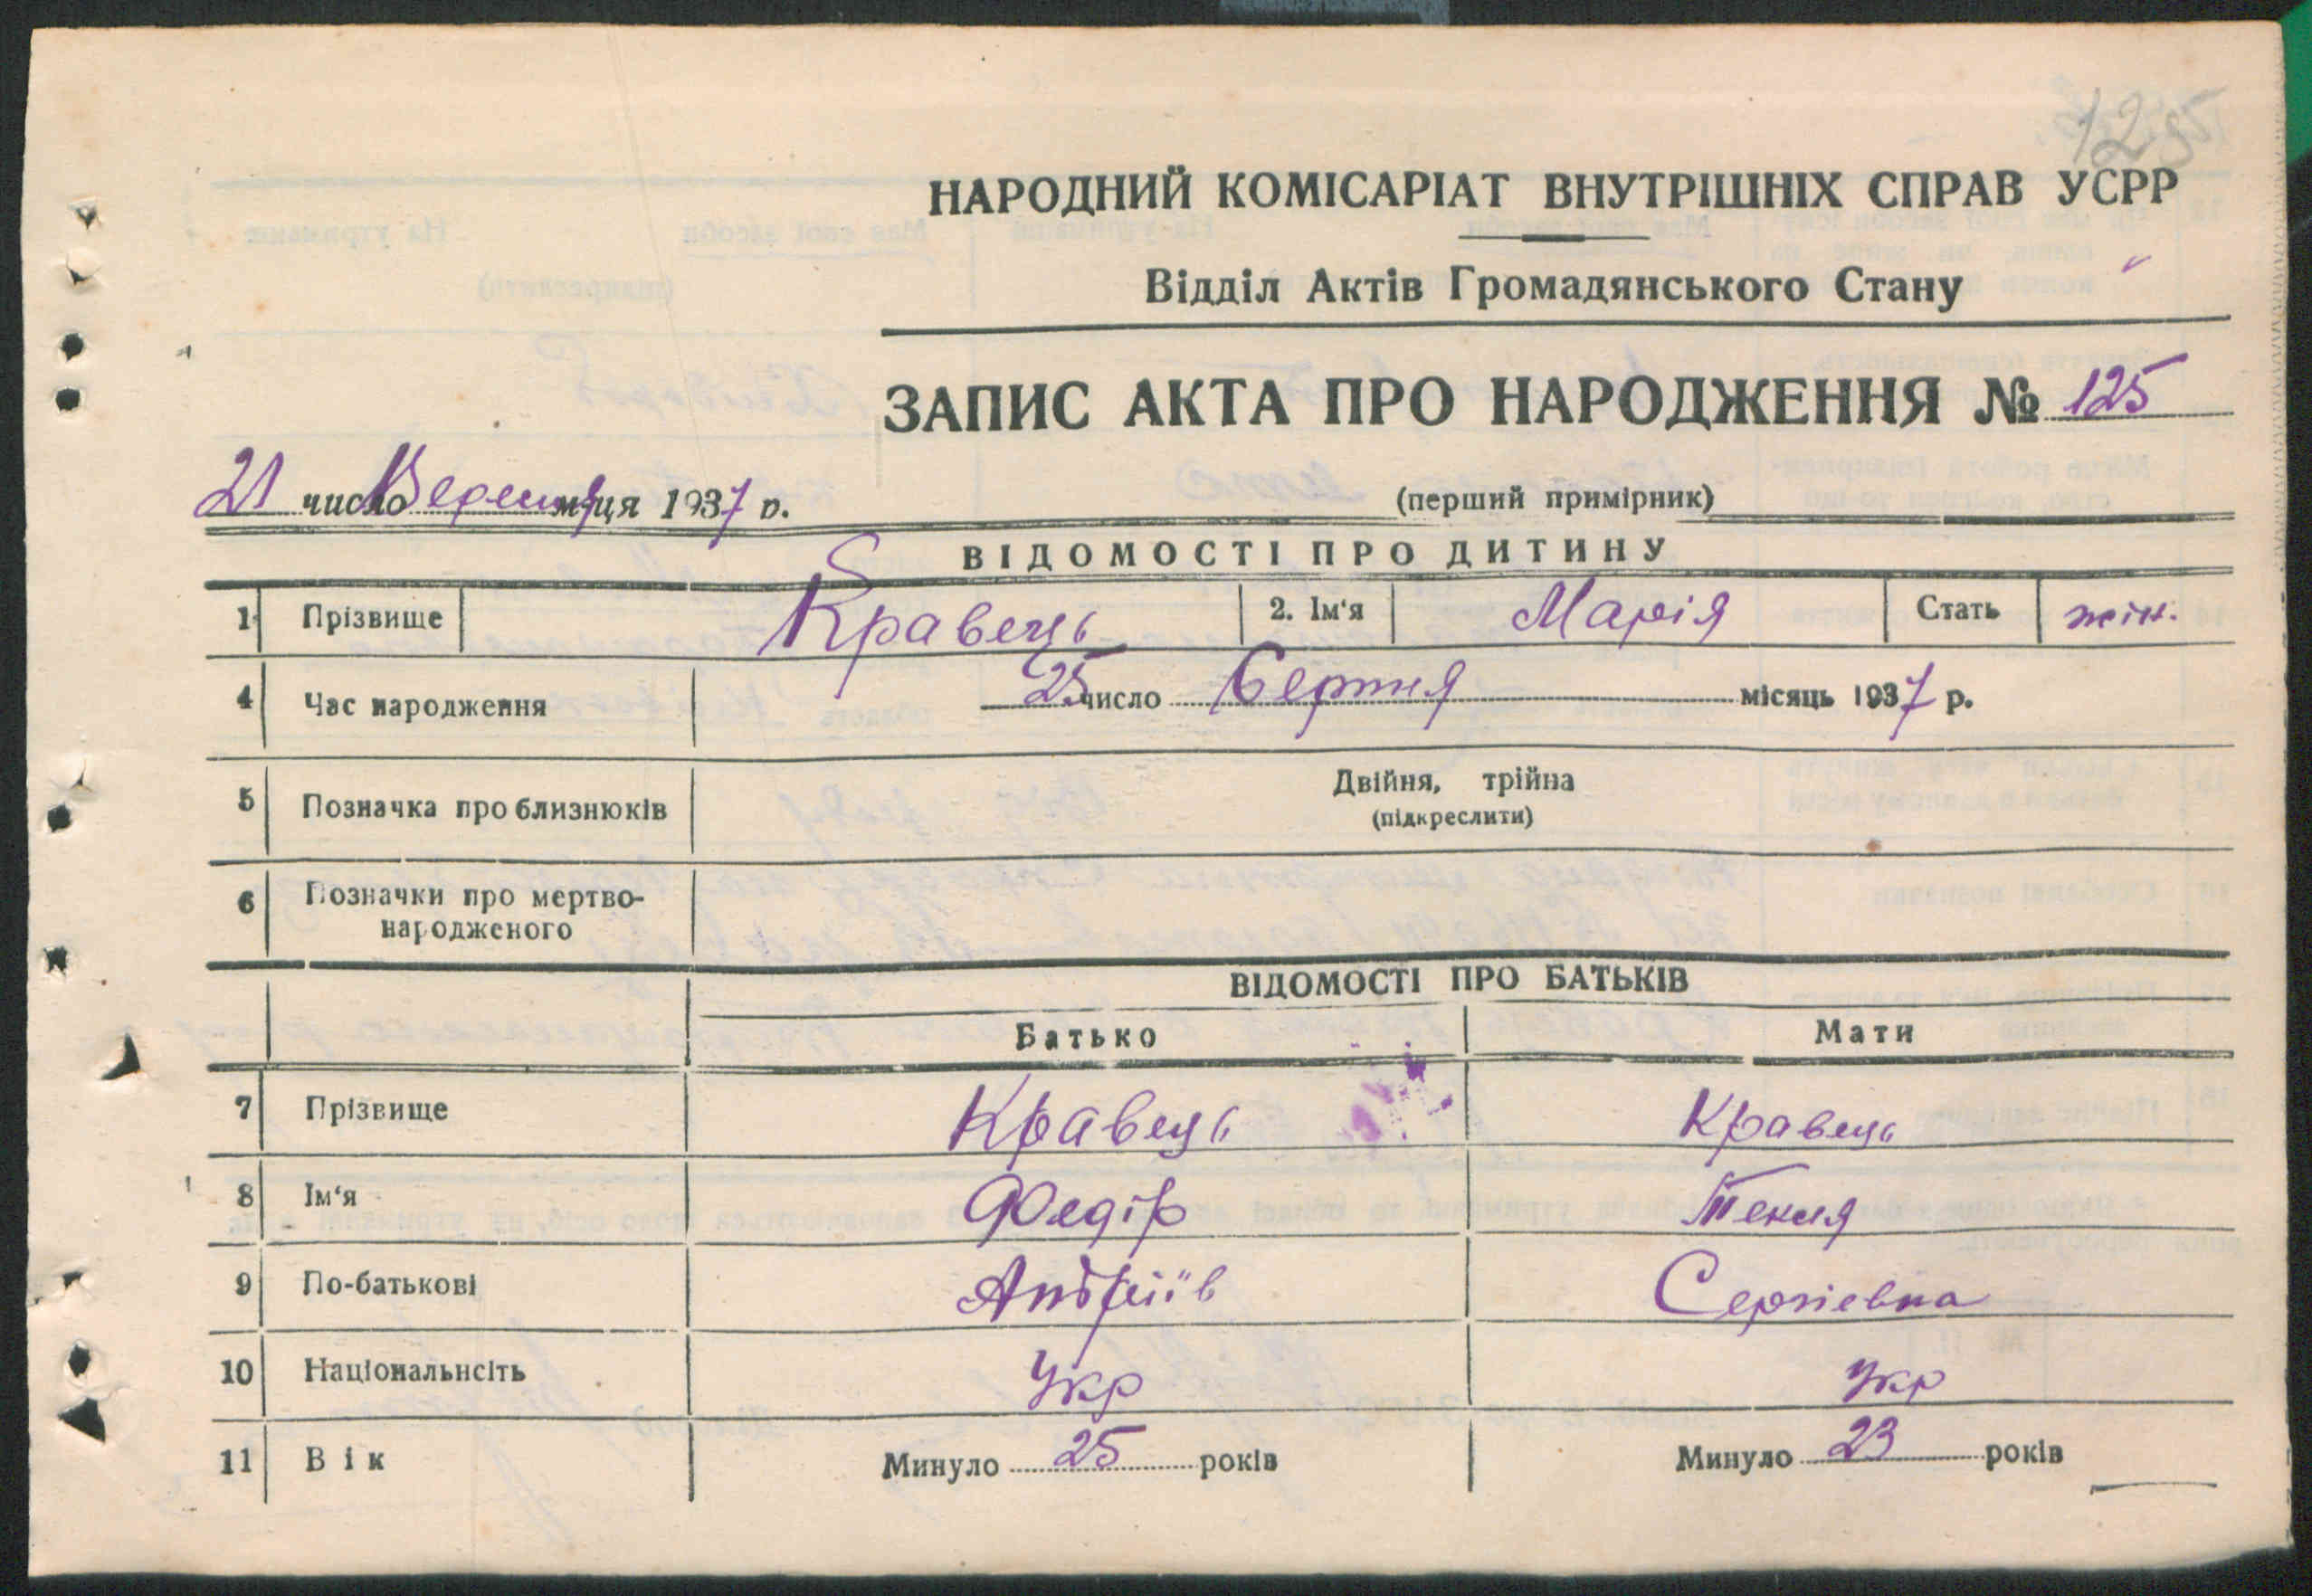 125
НАРОДНИЙ КОМІСАРІАТ ВНУТРІШНІХ СПРАВ УСРР
Відділ Актів Громадянського Стану
ЗАПИС АКТА ПРО НАРОДЖЕННЯ № 125
21 число Вересня м-ця 1937 р.
(перший примірник)
ВІДОМОСТІ ПРО ДИТИНУ
1 Прізвище Кравець 2. Ім'я Марія Стать жін.
4 Час народження 25 число Серпня місяць 1937 р.
5 Позначка про близнюків Двійня, трійна
(підкреслити)
6 Позначки про мертво-
народженого
ВІДОМОСТІ ПРО БАТЬКІВ
Батько Мати
7 Прізвище Кравець Кравець
8 Ім'я Федір Текля
9 По-батькові Андріїв Сергієвна
10 Національнсіть Укр Укр
11 Вік Минуло 25 років Минуло 23 років